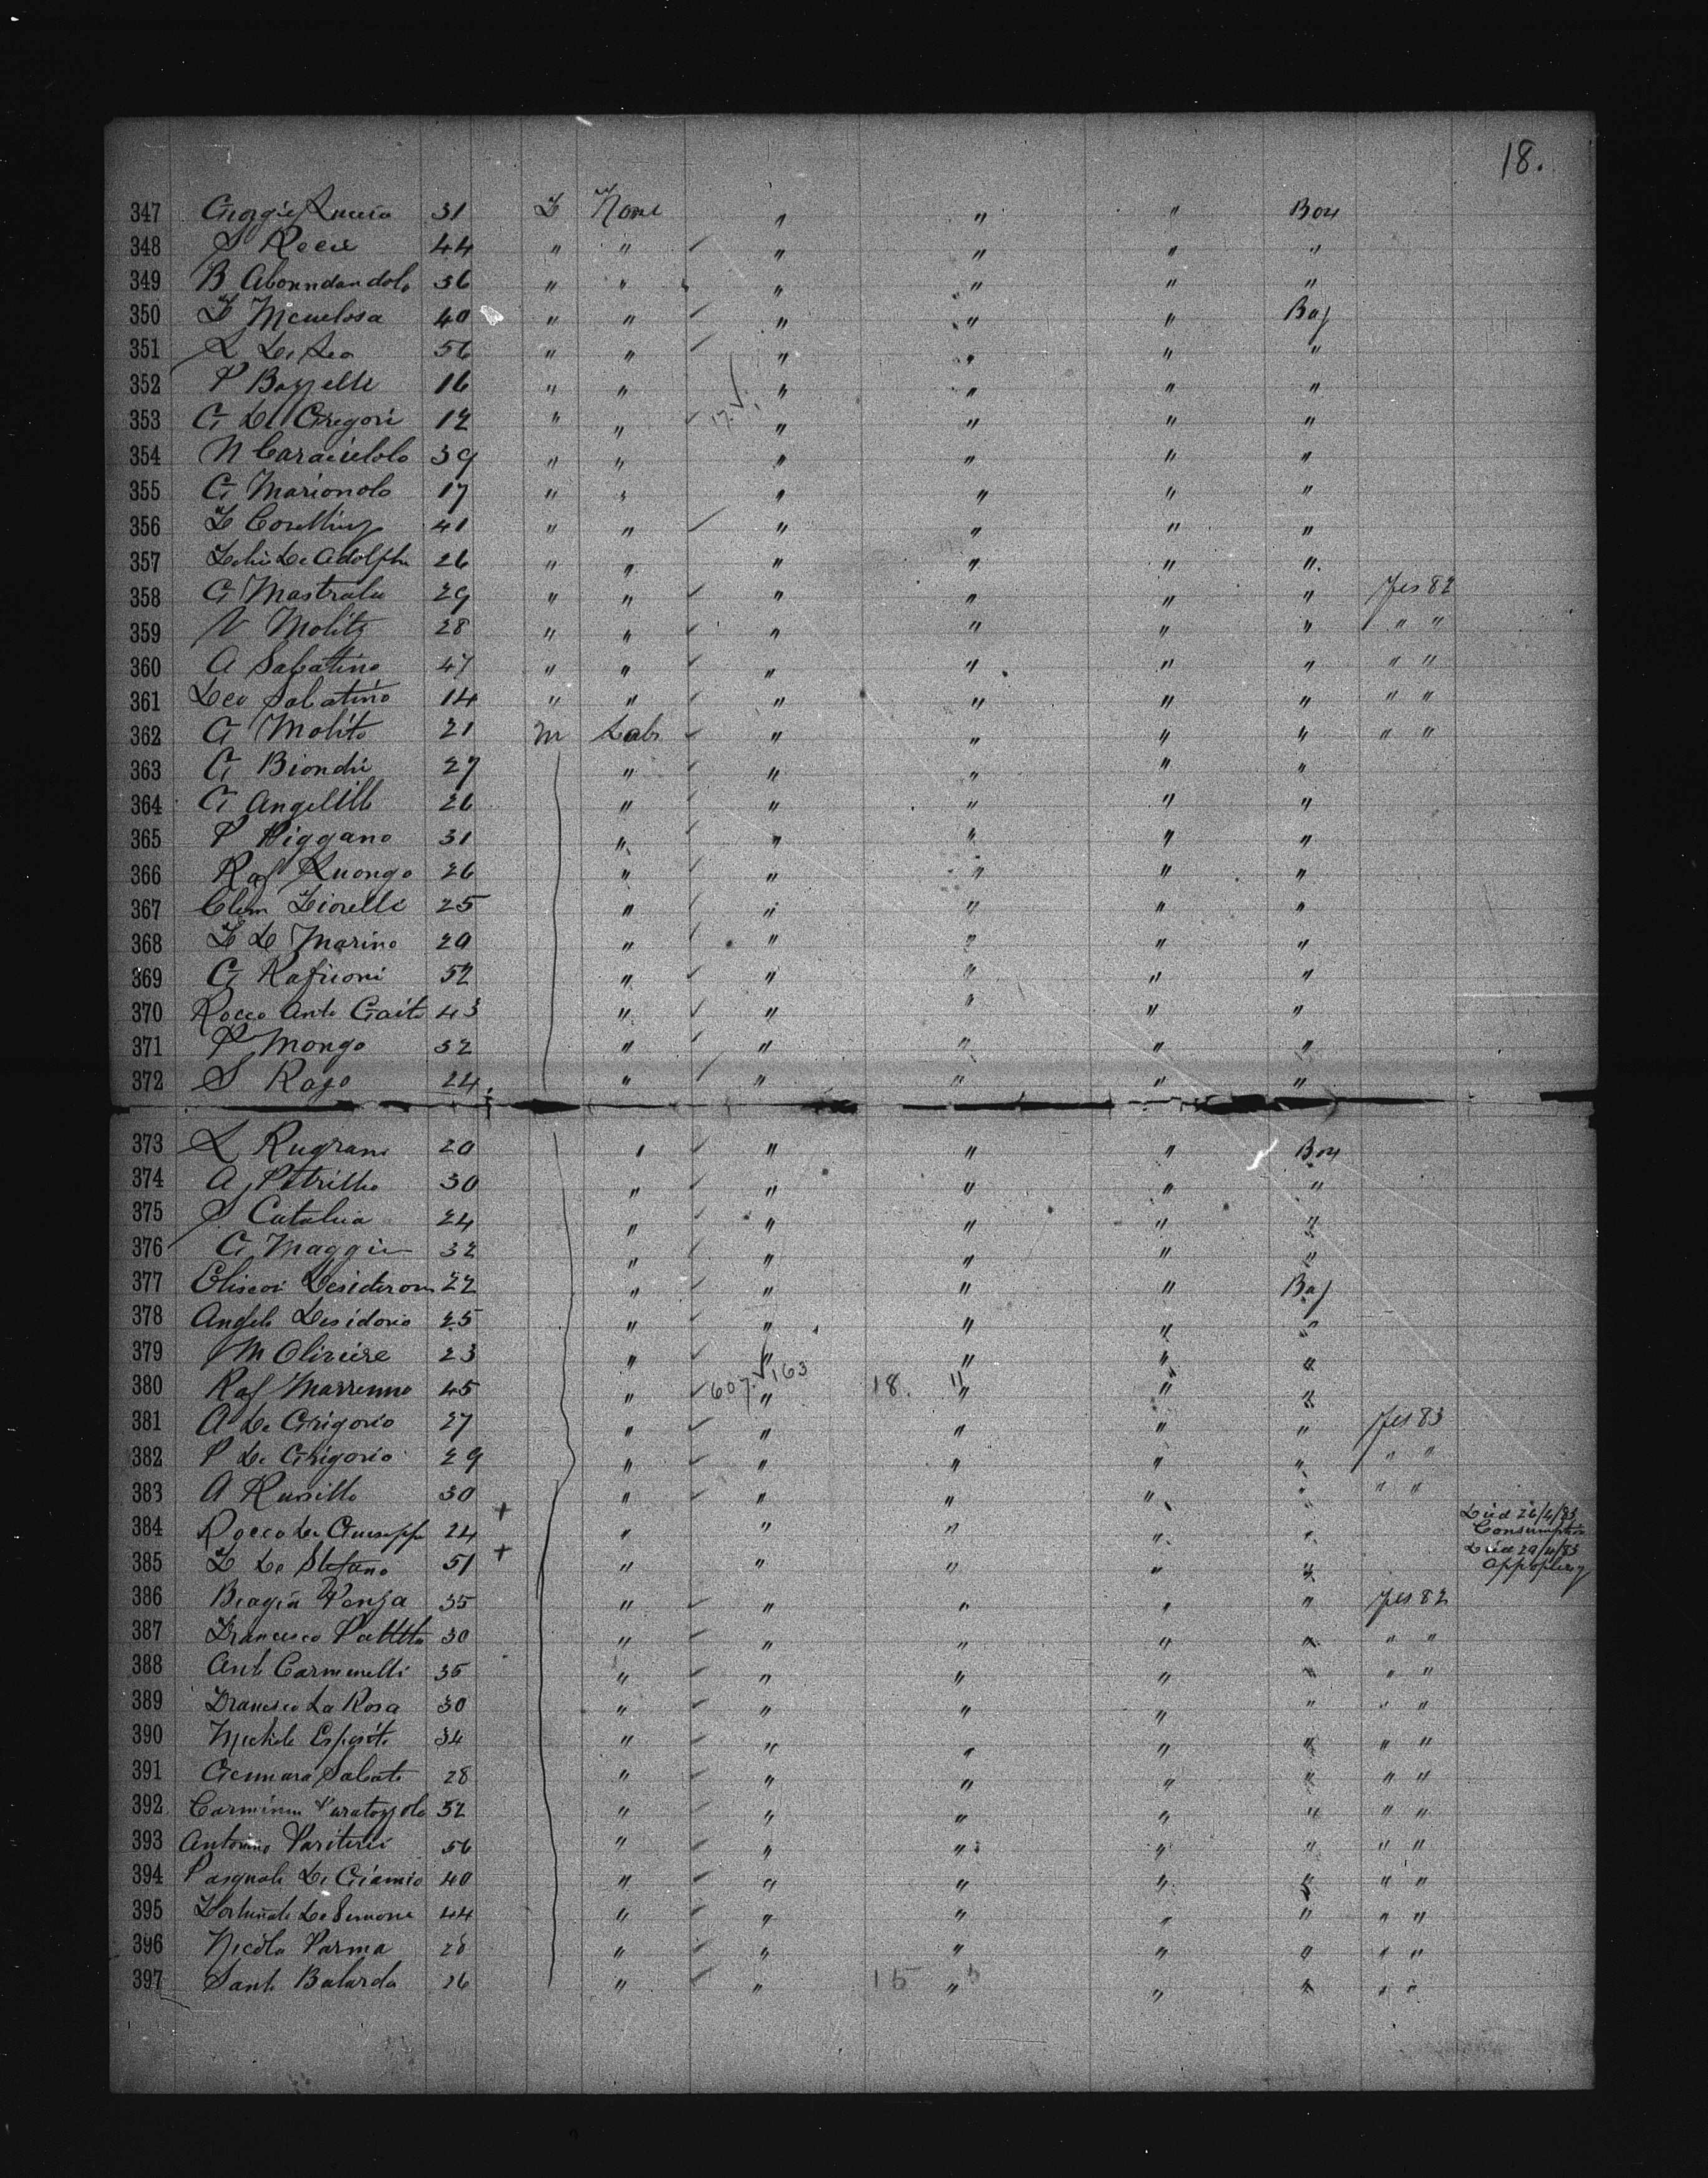 18.
347 Giorgie Lucia 31 F None " " " Box
348 S Rocci 44 " " ✓ " " " "
349 B Abonndandolo 36 " " " " " "
350 F 40 " " ✓ " " " Bag
351 L De Leo 56 " " ✓ " " " "
352 P Bozzelli 16 " " " " " "
353 G De Gregori 12 " " ✓ 17 ✓ " " " "
354 N 39 " " " " " "
355 G Marionolo 17 " " " " " "
356 F 41 " " ✓ " " " "
357 De Adolphe 26 " " " " " "
358 G Mastralu 29 " " ✓ " " " " Yes 82
359 V Molitz 28 " " ✓ " " " " " "
360 A Sabatino 47 " " ✓ " " " " " "
361 Leo Sabatino 14 " " ✓ " " " " " "
362 G Molito 21 M Labr ✓ " " " " " "
363 G Biondi 27 " ✓ " " " "
364 G Angelillo 26 " ✓ " " " "
365 P Piggano 31 " ✓ " " " "
366 Raf Luongo 26 " ✓ " " " "
367 Clem Fiorelli 25 " ✓ " " " "
368 F De Marino 20 " ✓ " " " "
369 G 52 " ✓ " " " "
370 Rocco Anto Gaito 43 " ✓ " " " "
371 P Mongo 32 " ✓ " " " "
372 S Rago 24 " ✓ " " " "
373 L Rugrani 20 " ✓ " " " Box
374 A Petrillo 30 " ✓ " " " "
375 S 24 " ✓ " " " "
376 G Maggie 32 " ✓ " " " "
377 22 " ✓ " " " Bag
378 Angelo Desidorio 25 " ✓ " " " "
379 M Oliviere 23 " ✓ " " " "
380 Raf Marrenno 45 " ✓ 607 ✓ 163 " 18. 11 " " "
381 A De Grigorio 27 " ✓ " " " " Yes 83
382 P De Grigorio 29 " ✓ " " " " " "
383 A Russillo 30 " ✓ " " " " " "
384 Rocco De Giuseppe 24 + " " " " " Died 26/4/83 Consumption
385 F De Stefano 51 + " " " " " Died 29/4/83 Appoplexy
386 Biagia Ponza 35 " ✓ " " " " Yes 82
387 Francesco 30 " ✓ " " " " " "
388 Anto Carminelli 35 " ✓ " " " " " "
389 Francesco La Rosa 30 " ✓ " " " " " "
390 Michele Esposito 34 " ✓ " " " " " "
391 Gennara Sabato 28 " ✓ " " " " " "
392 52 " ✓ " " " " " "
393 Antonino 56 " ✓ " " " " " "
394 Pasquale De Giamio 40 " ✓ " " " " " "
395 Fortunato De Simone 44 " ✓ " " " " " "
396 Nicola Parma 28 " ✓ " " " " " "
397 Santo Balardo 26 " ✓ " 15 5 " " " " "